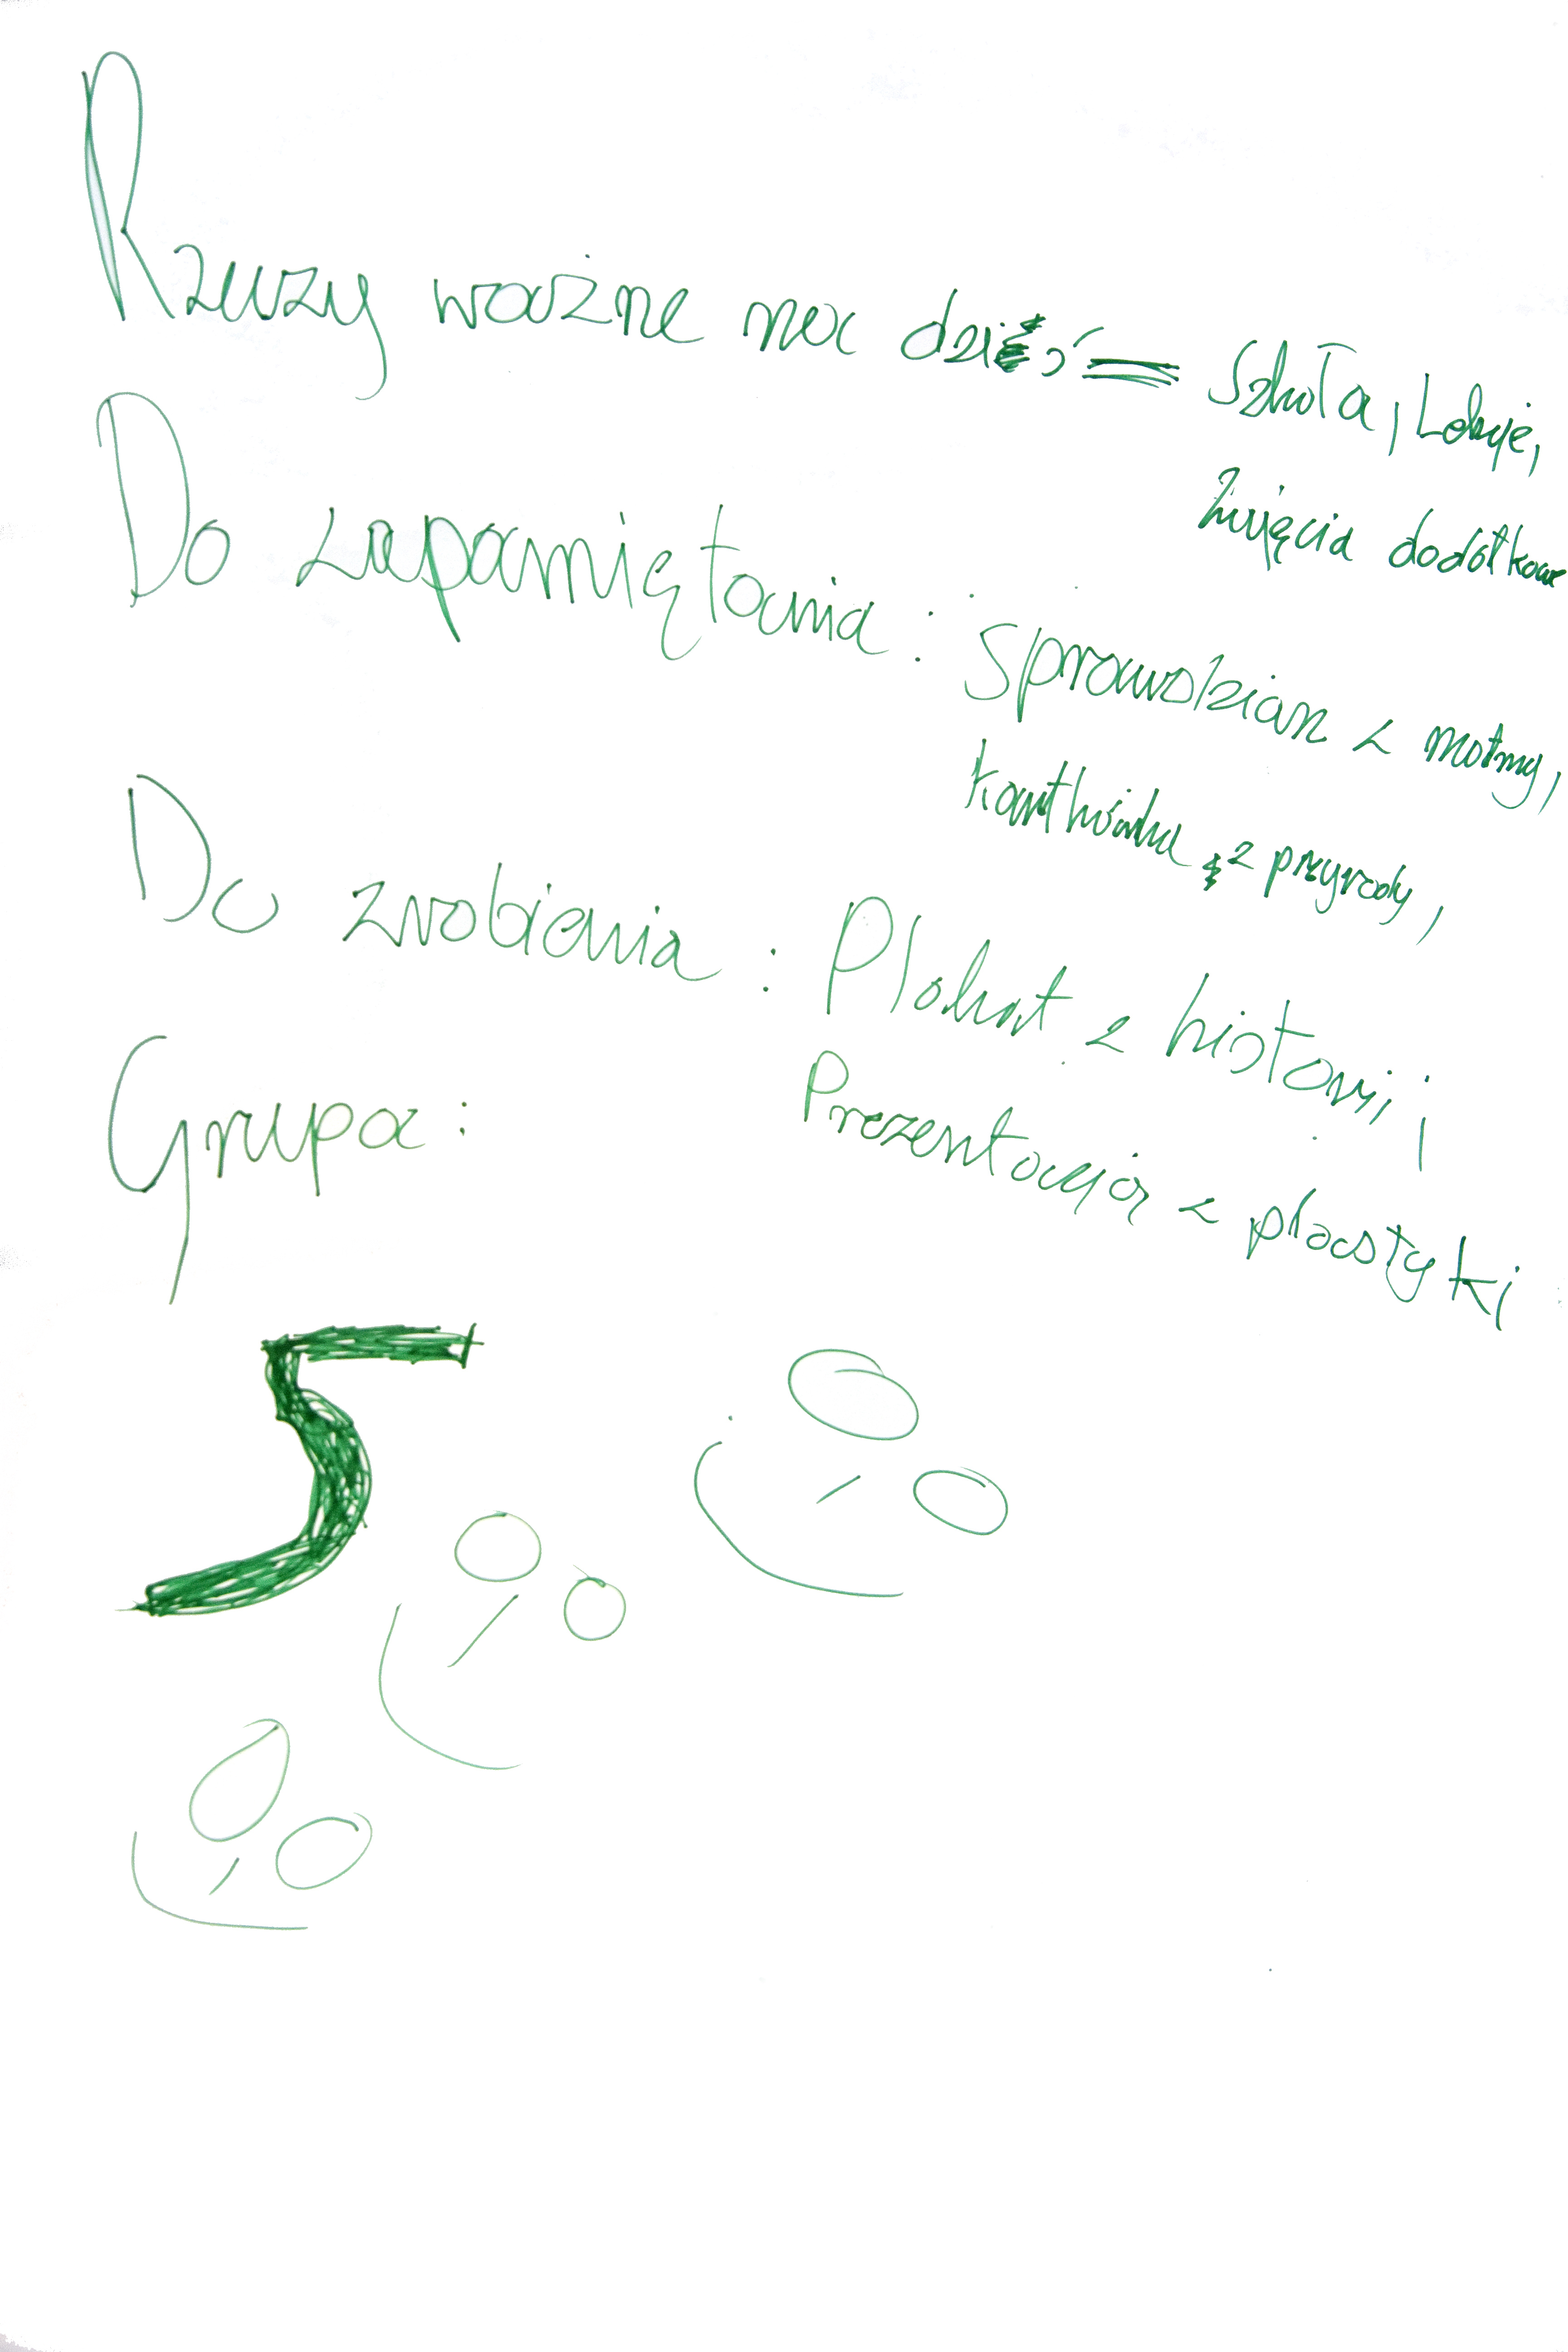 Rzeczy ważne na dziś = Szkoła, Lekcje,
Zajęcia dodatkow
Do zapamiętania : Sprawdzian z matmy,
kartkówka z przyrody,
Do zrobienia : Plakat z historii,
Prezentacja z plastyki
Grupa :
5